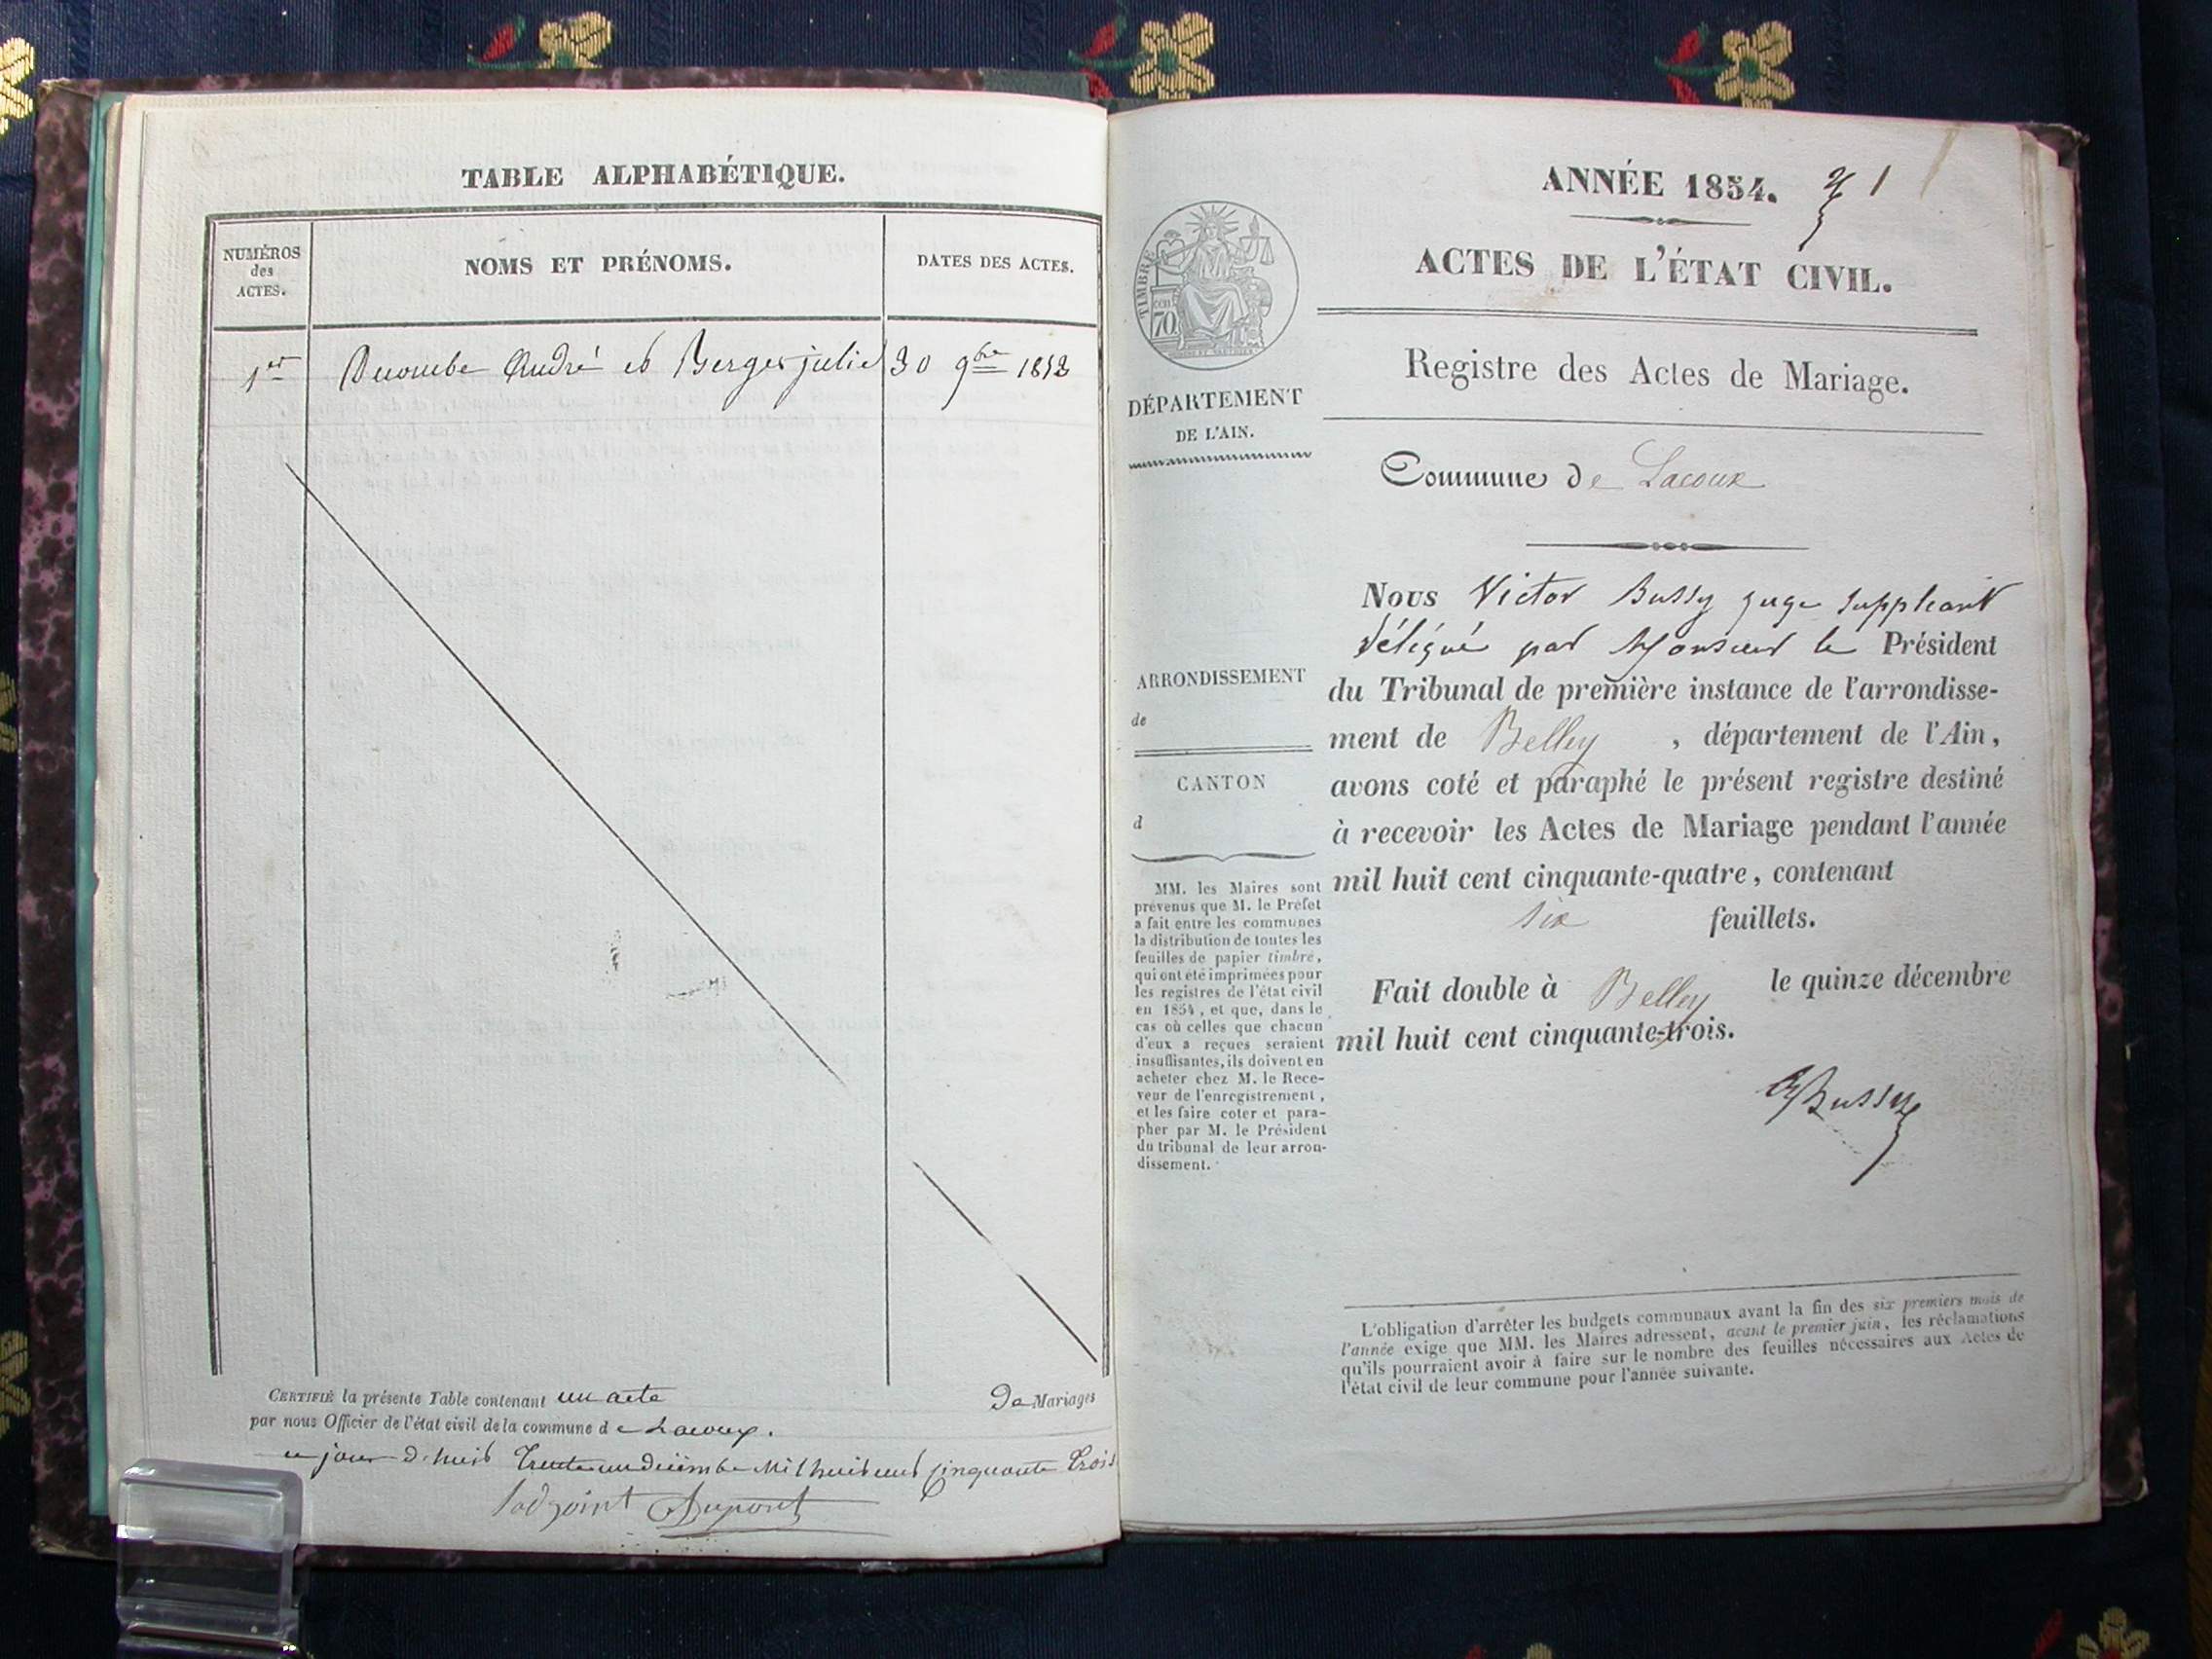 TABLE ALPHABÉTIQUE.
NUMÉROS
des
ACTES.
NOMS ET PRÉNOMS.
DATES DES ACTES.
1er Ducombe André et Berger julie 30 9bre 1853
CERTIFIÉ la présente Table contenant un acte De Mariages
par nous Officier de l'état civil de la commune de Lacoux.
ce jour d'huis Trente un décembre Mil huit cent cinquante Trois
l'adjoint Dupont
ANNÉE 1854. 1
ACTES DE L'ÉTAT CIVIL.
Registre des Actes de Mariage.
TIMBRE
cen
70
DÉPARTEMENT
DE L'AIN.
Commune de Lacoux
ARRONDISSEMENT
de
CANTON
d
MM. les Maires sont
prévenus que M. le Préfet
a fait entre les communes
la distribution de toutes les
feuilles de papier timbré,
qui ont été imprimées pour
les registres de l'état civil
en 1854, et que, dans le
cas où celles que chacun
d'eux a reçues seraient
insuffisantes, ils doivent en
acheter chez M. le Rece-
veur de l'enregistrement,
et les faire coter et para-
pher par M. le Président
du tribunal de leur arron-
dissement.
Nous Victor Bussy juge suppléant
délégué par Monsieur le Président
du Tribunal de première instance de l'arrondisse-
ment de Belley, département de l'Ain,
avons coté et paraphé le présent registre destiné
à recevoir les Actes de Mariage pendant l'année
mil huit cent cinquante-quatre, contenant
six feuillets.
Fait double à Belley le quinze décembre
mil huit cent cinquante-trois.
Bussy
L'obligation d'arrêter les budgets communaux avant la fin des six premiers mois de
l'année exige que MM. les Maires adressent, avant le premier juin, les réclamations
qu'ils pourraient avoir à faire sur le nombre des feuilles nécessaires aux Actes de
l'état civil de leur commune pour l'année suivante.